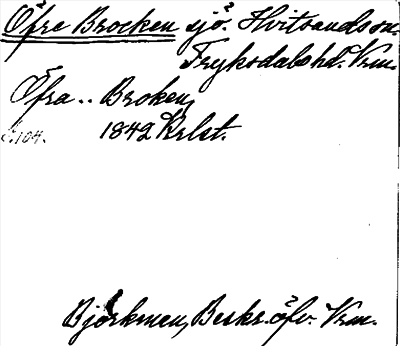 Öfre Brocken sjö. Hvitsandssn.
Fryksdalshd. Vrm.
Öfra .. Broken,
1842 Krlst.
s. 104.
Björkman, Beskr. öfv. Vrm.